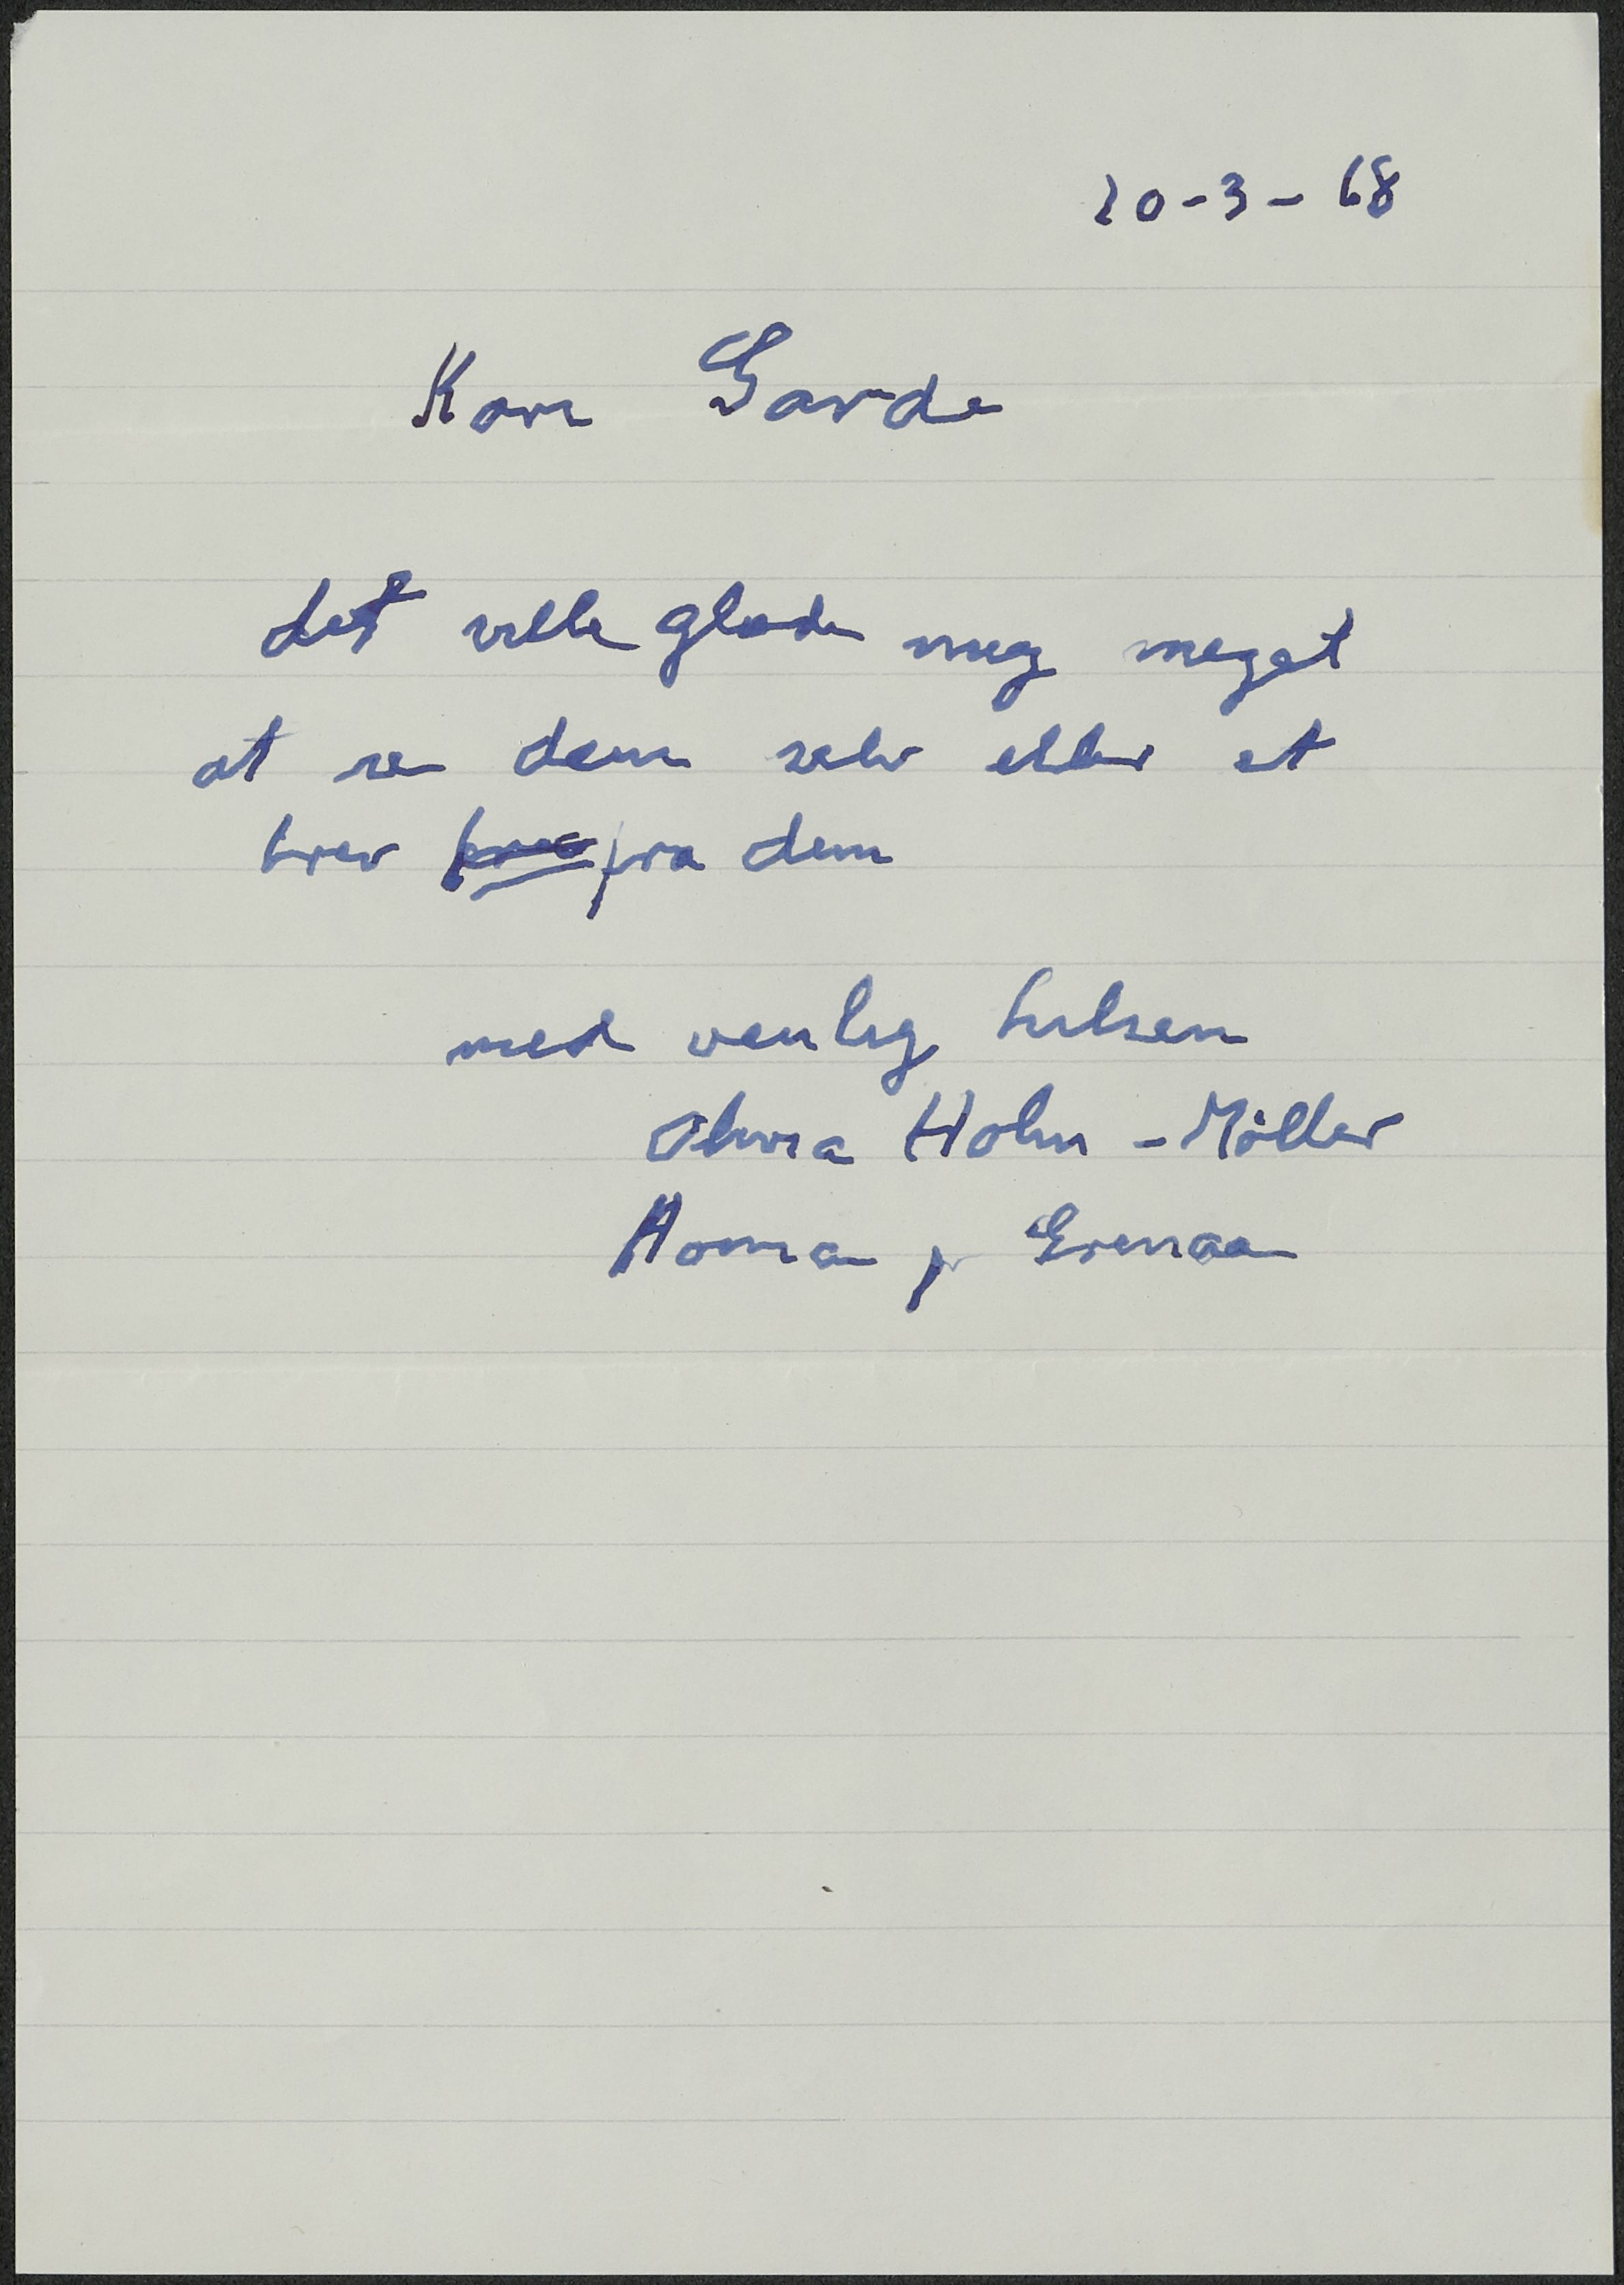 20-3-68
Kære Garde
det ville glæde mig meget
at se dem selv eller et
brev fra dem
med venlig hilsen
Olivia Holm-Möller
Homa pr Grenaa